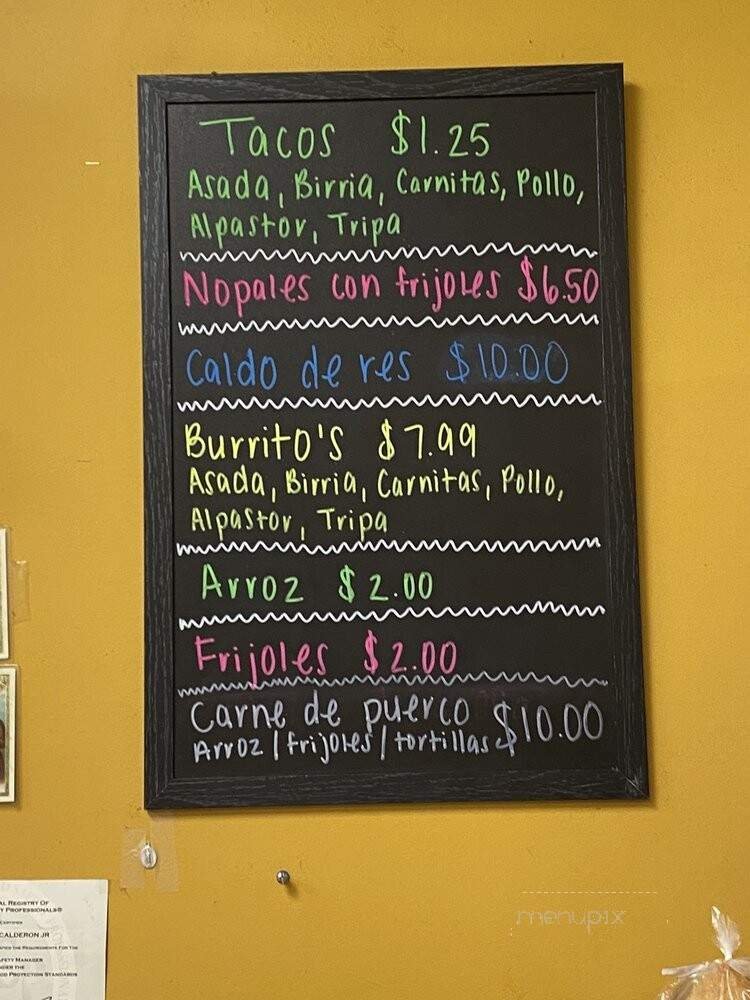 Tacos $1.25
Asada, Birria, Carnitas, Pollo,
Alpastor, Tripa
Nopales con frijoles $6.50
Caldo de res $10.00
Burrito's $7.99
Asada, Birria, Carnitas, Pollo,
Alpastor, Tripa
Arroz $2.00
Frijoles $2.00
Carne de puerco $10.00
Arroz/frijoles/tortillas
AL REGISTRY OF
Y PROFESSIONALS®
CALDERON JR
FIED THE REQUIREMENTS FOR THE
AFETY MANAGER
NDER THE
OD PROTECTION STANDARDS
menupix